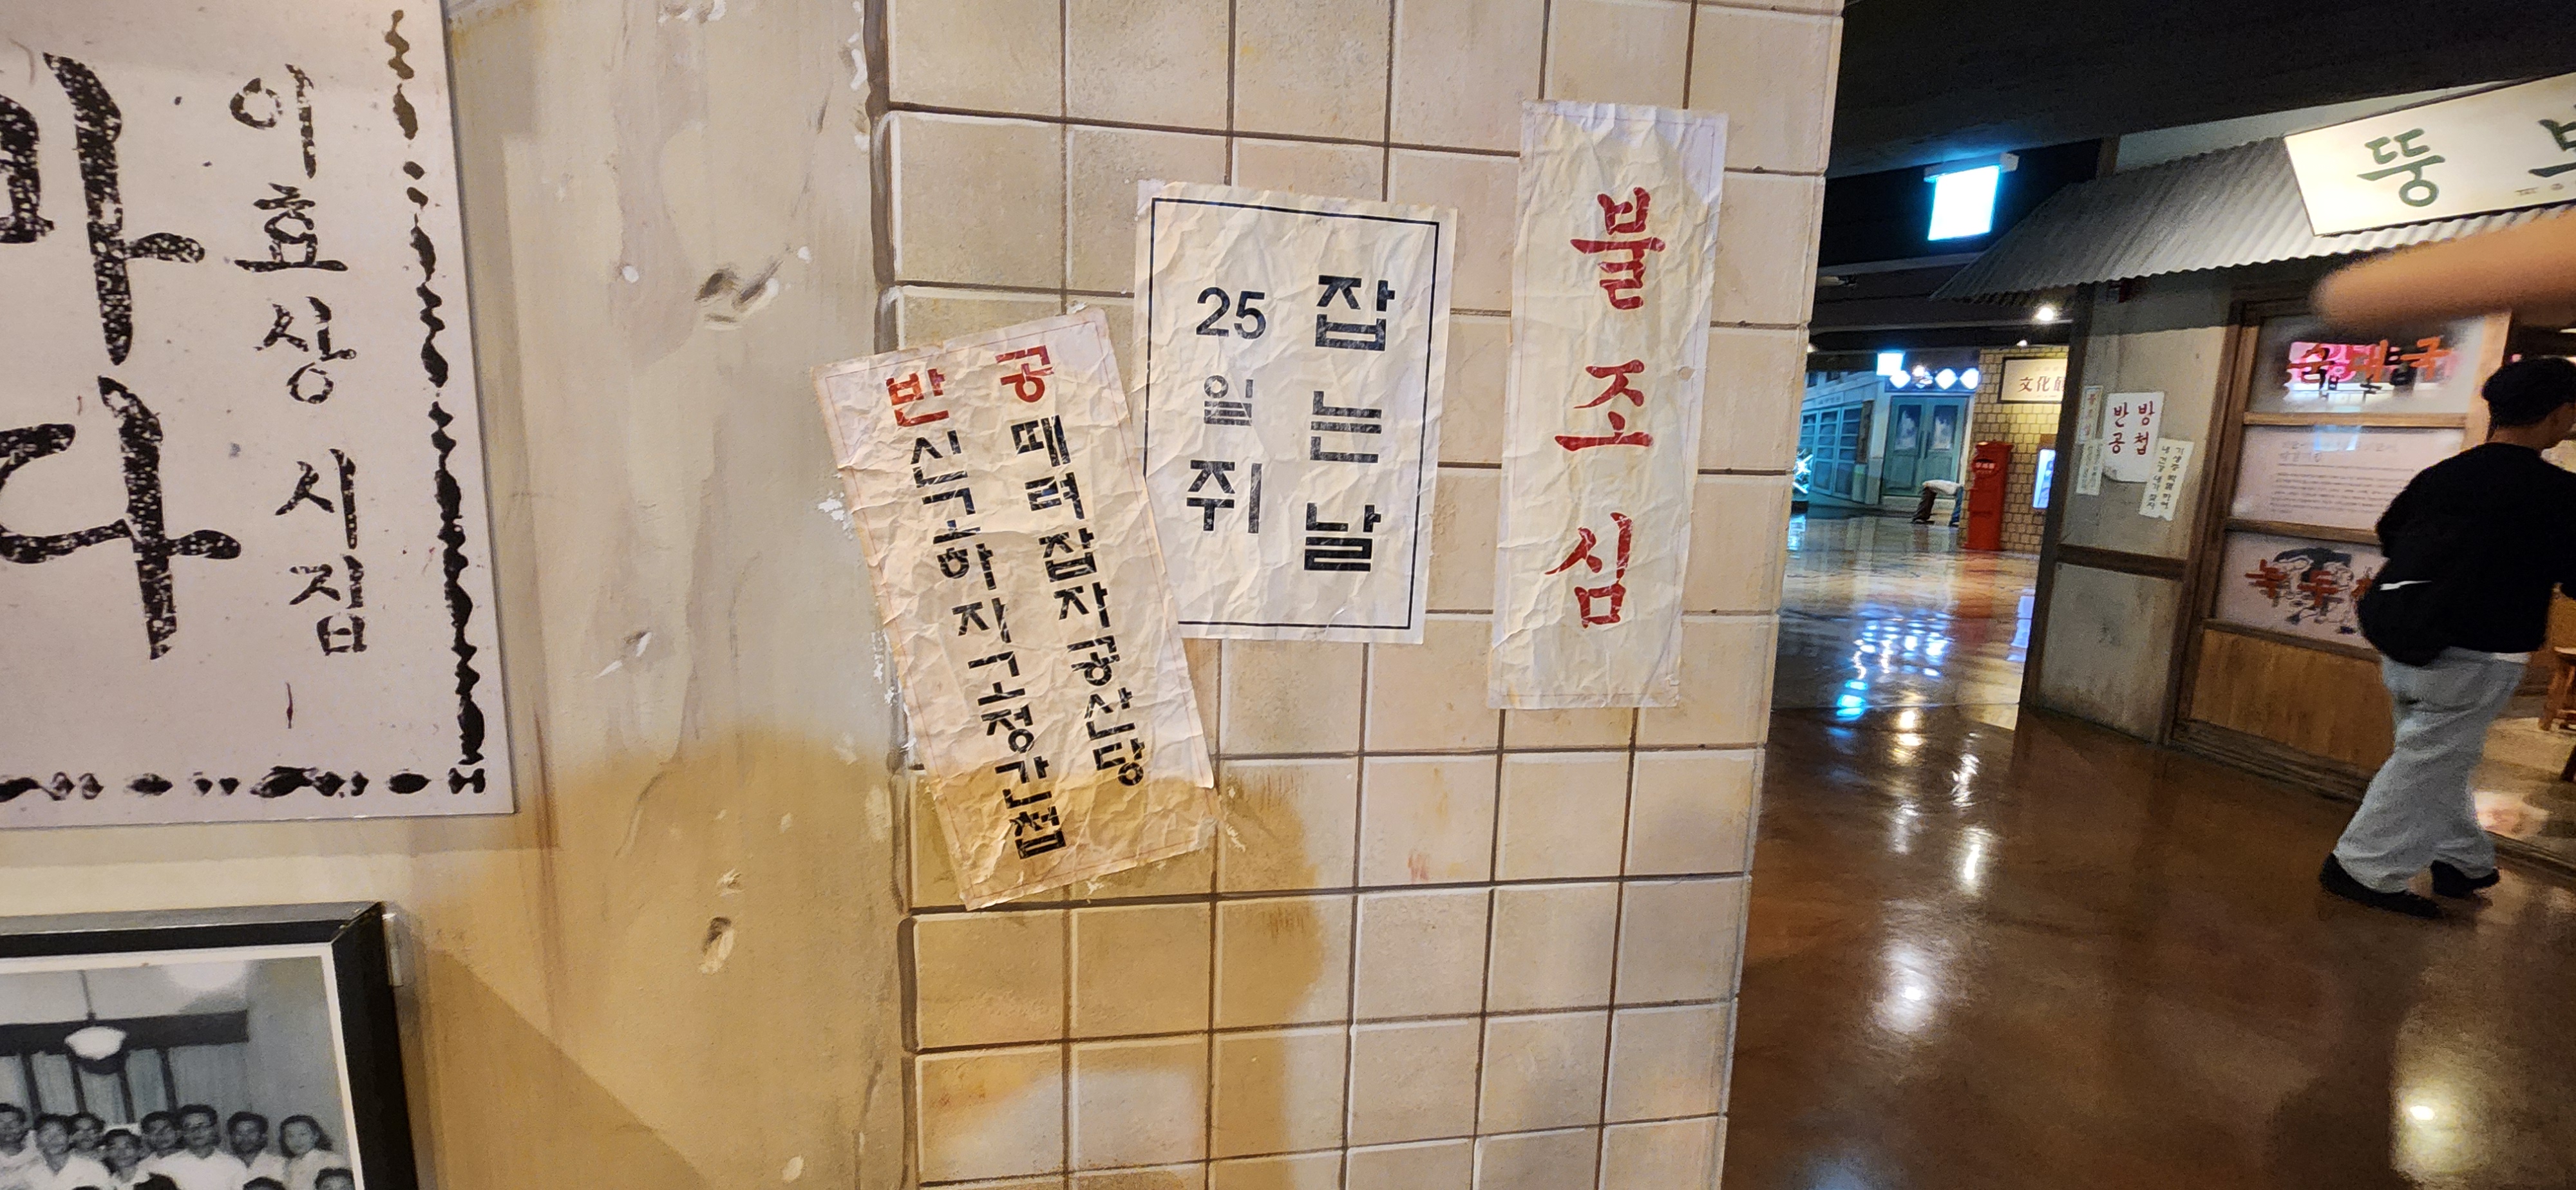 바다
이효상 시집
반공
신고하자고정간첩
때력잡자공산당
25일쥐
잡는날
불조심
뚱
文化
반공
방첩